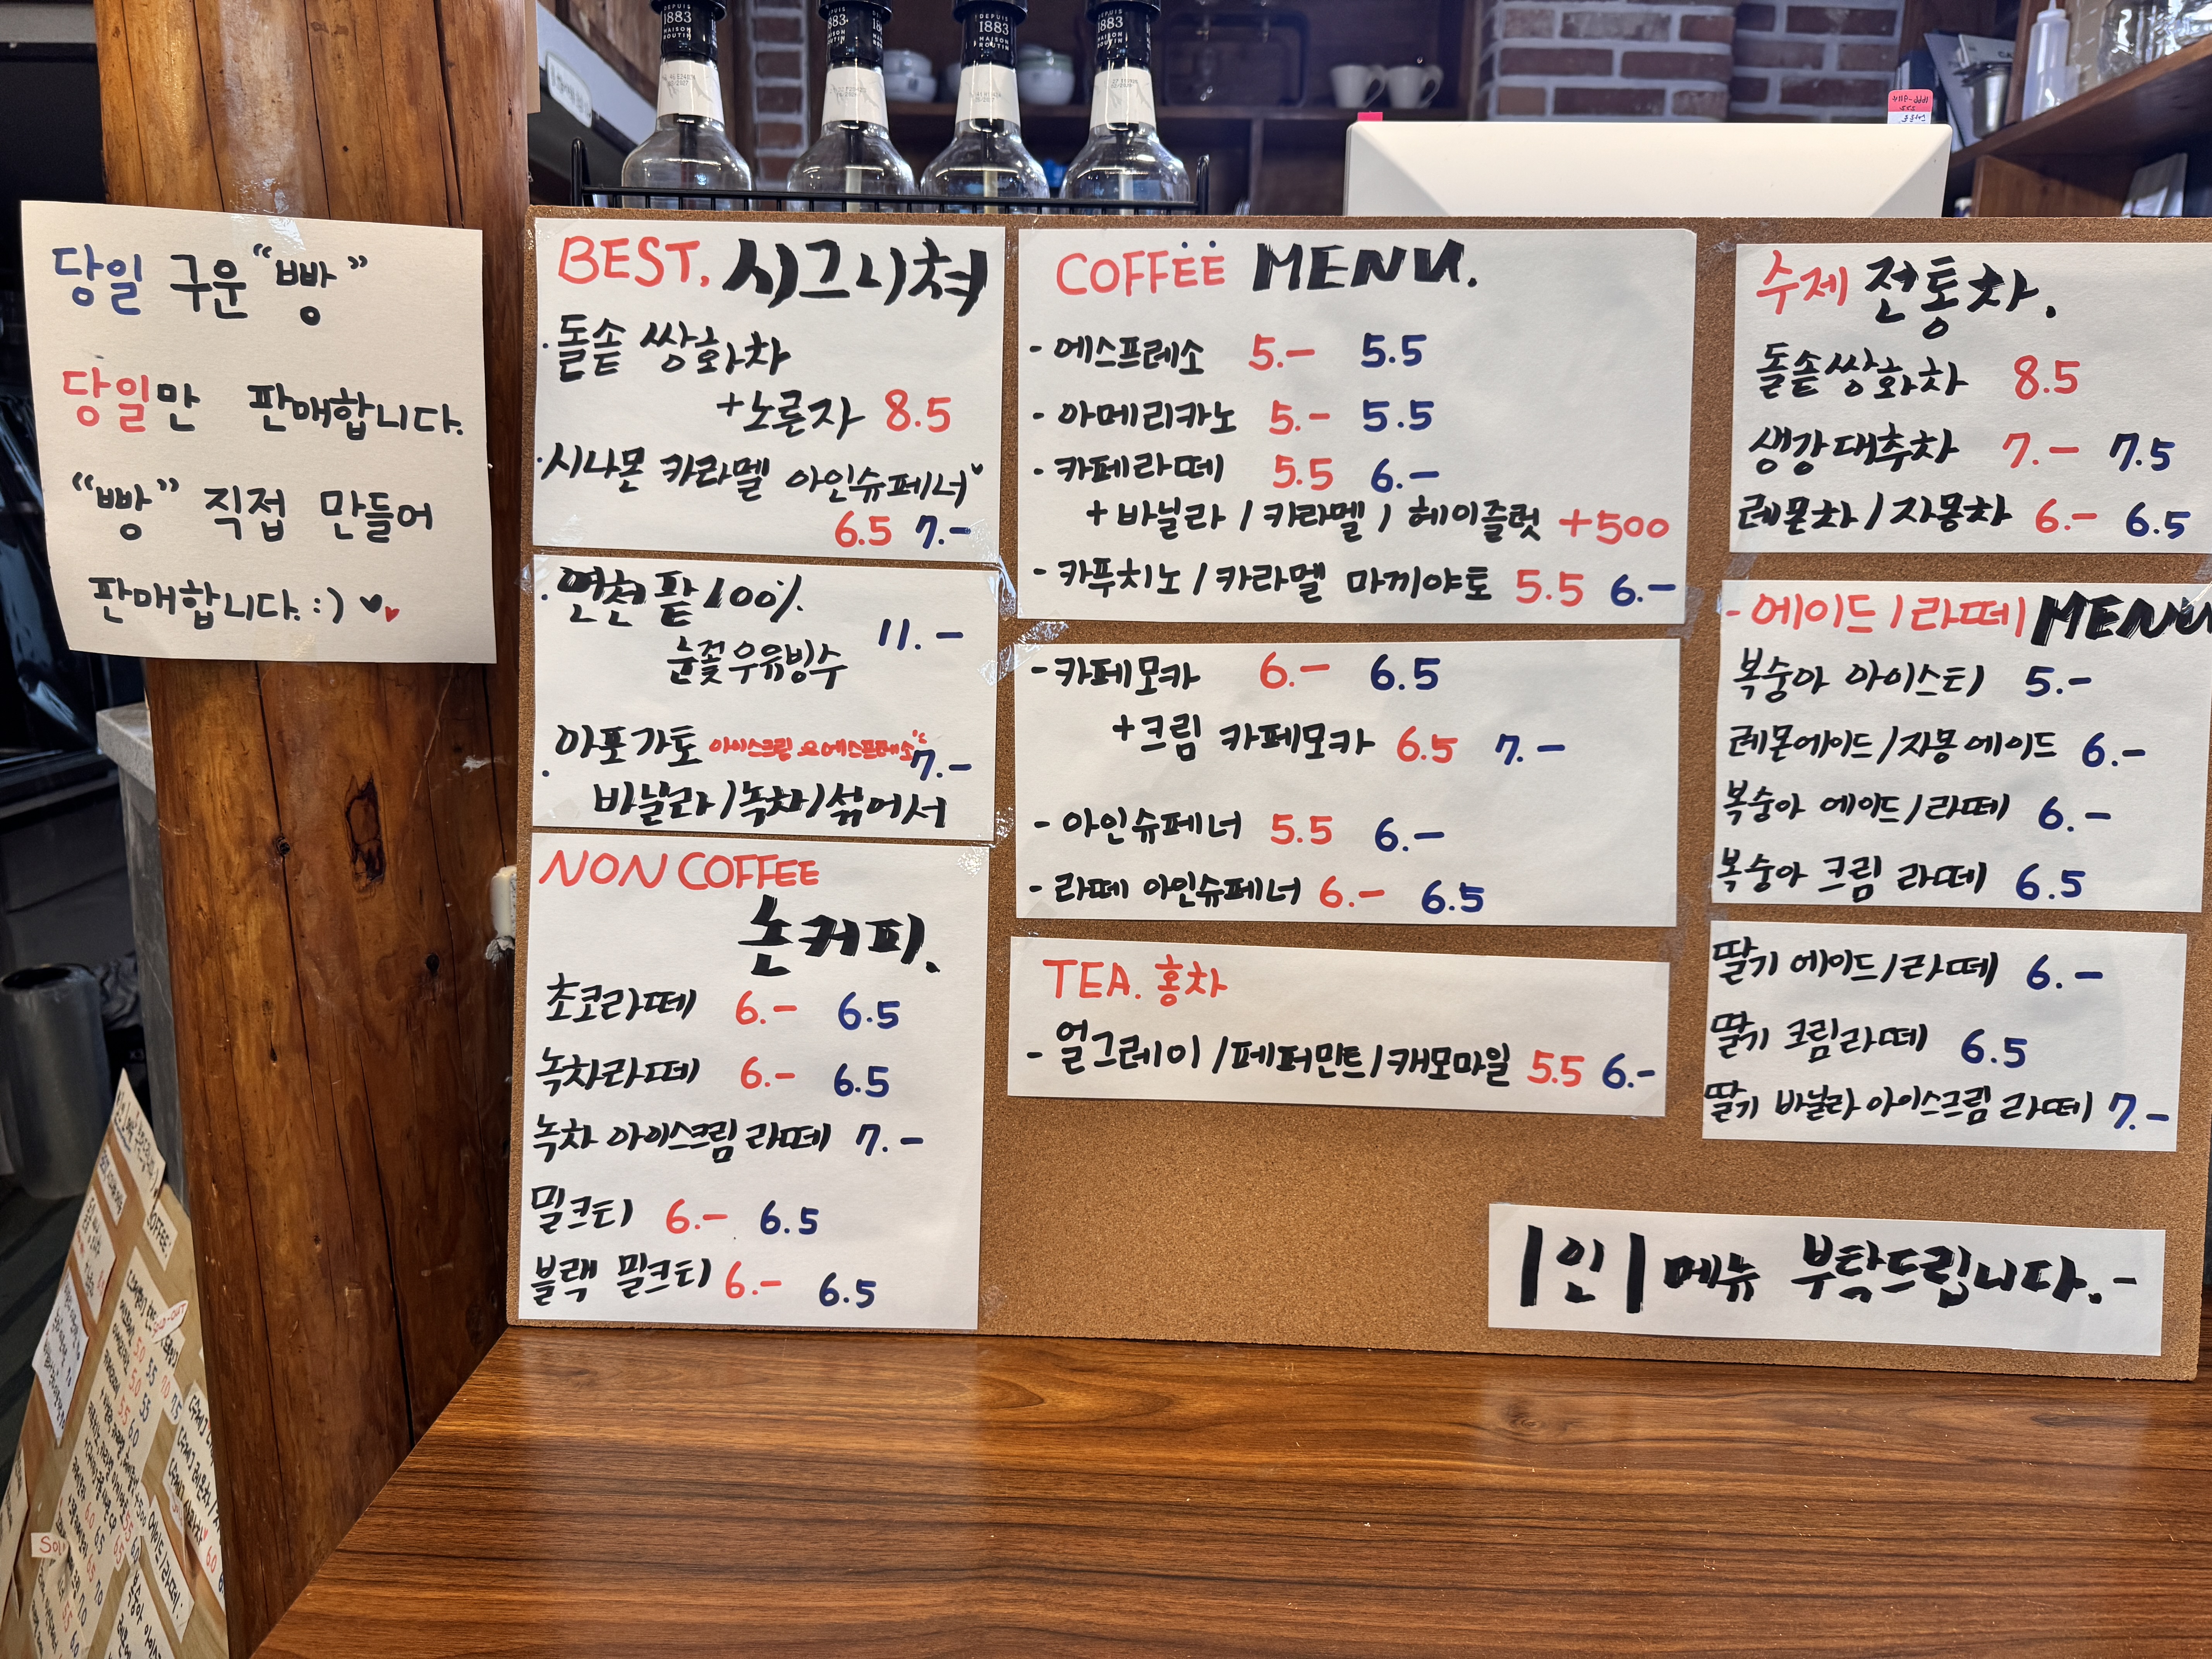 당일 구운 "빵"
당일만 판매합니다.
"빵" 직접 만들어
판매합니다. :)
BEST. 시그니쳐
· 돌솥 쌍화차
+노른자 8.5
· 시나몬 카라멜 아인슈페너
6.5 7.-
· 연천 팥 100%
눈꽃우유빙수 11.-
· 아포가토 아이스크림 으에스프레소 7.-
바닐라/녹차/섞어서
NON COFFEE
논커피.
초코라떼 6.- 6.5
녹차라떼 6.- 6.5
녹차 아이스크림 라떼 7.-
밀크티 6.- 6.5
블랙 밀크티 6.- 6.5
COFFEE MENU.
- 에스프레소 5.- 5.5
- 아메리카노 5.- 5.5
- 카페라떼 5.5 6.-
+ 바닐라 / 카라멜 / 헤이즐럿 +500
- 카푸치노 / 카라멜 마끼야토 5.5 6.-
- 카페모카 6.- 6.5
+크림 카페모카 6.5 7.-
- 아인슈페너 5.5 6.-
- 라떼 아인슈페너 6.- 6.5
TEA. 홍차
- 얼그레이 /페퍼민트/캐모마일 5.5 6.-
수제 전통차.
돌솥쌍화차 8.5
생강대추차 7.- 7.5
레몬차/자몽차 6.- 6.5
- 에이드/라떼 MENU
복숭아 아이스티 5.-
레몬에이드/자몽에이드 6.-
복숭아 에이드/라떼 6.-
복숭아 크림 라떼 6.5
딸기 에이드/라떼 6.-
딸기 크림라떼 6.5
딸기 바닐라 아이스크림 라떼 7.-
1인 1메뉴 부탁드립니다.-
DEPUIS
1883
MAISON
ROUTIN
DEPUIS
1883
MAISON
ROUTIN
COFFEE.